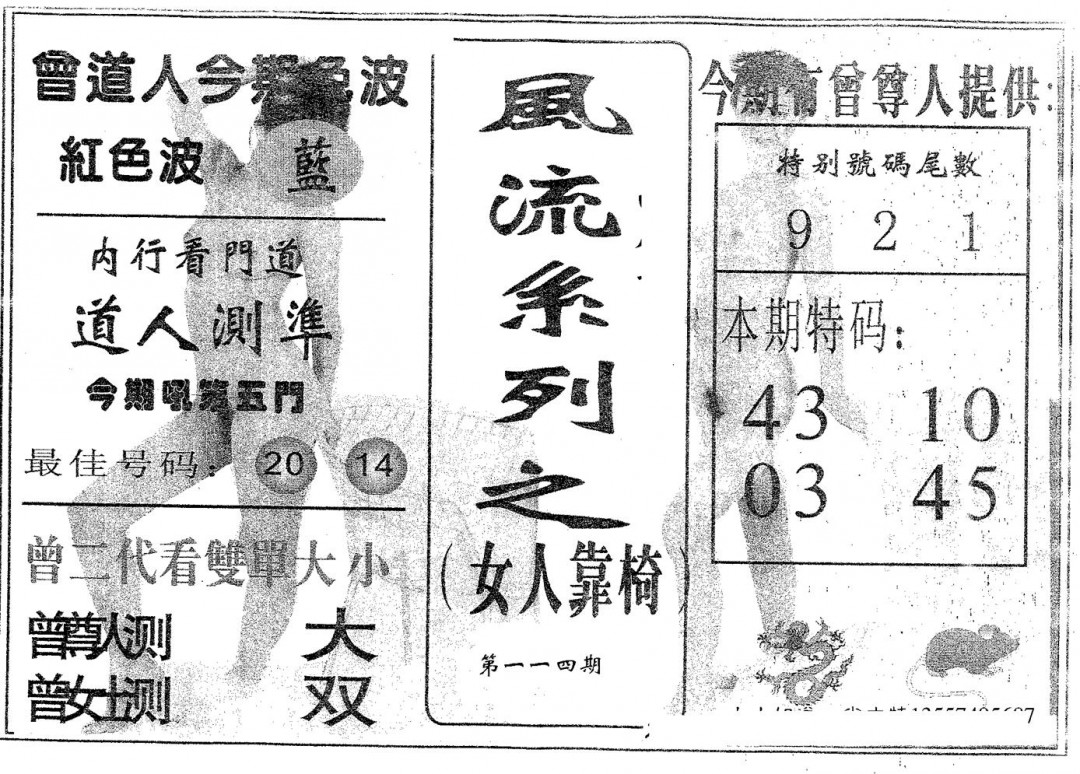 曾道人今期色波
紅色波 藍
内行看門道
道人測準
今期吼第五門
最佳号码： 20 14
曾二代看雙單大小
曾尊人测 大
曾女士测 双
風流系列之
（女人靠椅）
第一一四期
今期有曾尊人提供：
特别號碼尾數
9 2 1
本期特码：
43 10
03 45